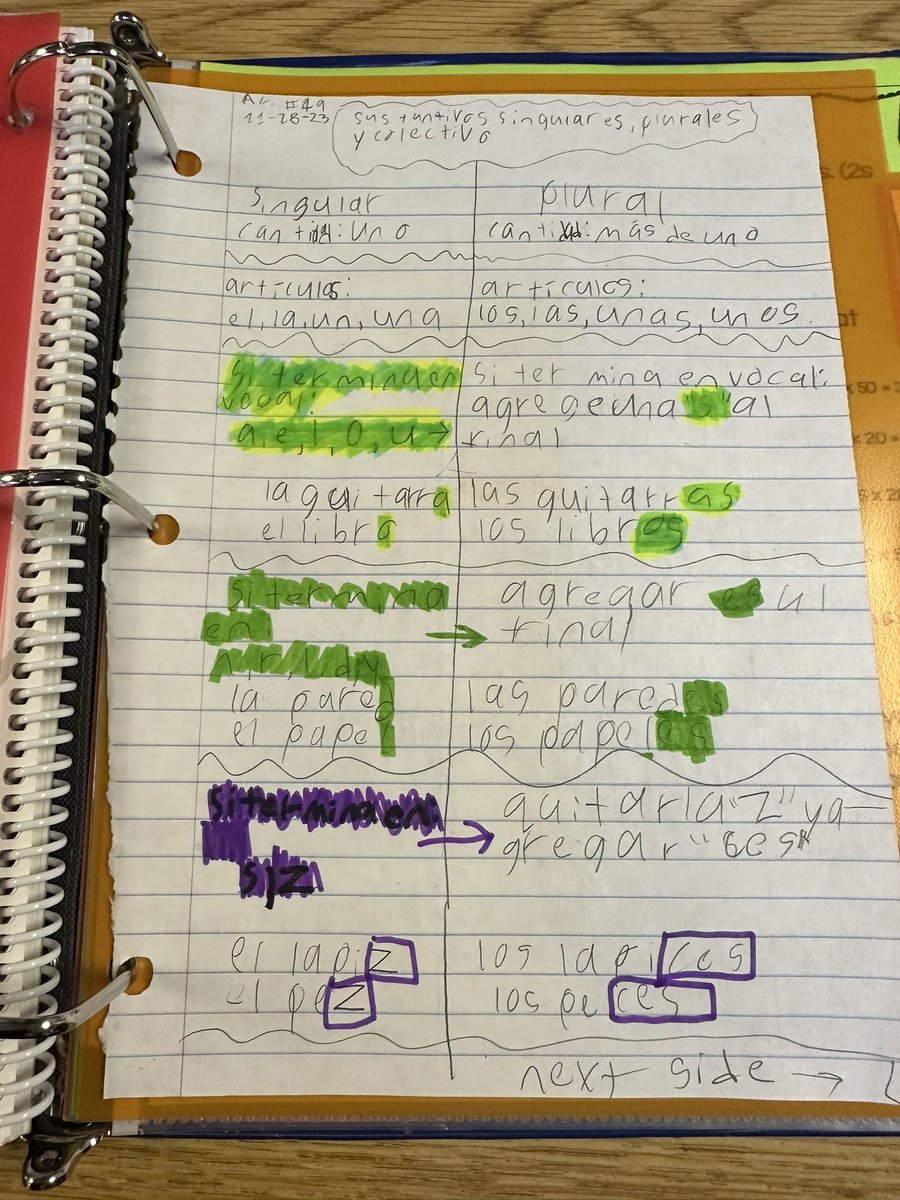 Ar. #49
11-28-23
sustantivos singulares, plurales
y colectivo
singular
cantidad: uno
plural
cantidad: más de uno
articulos:
el, la, un, una
articulos:
los, las, unas, unos
Si termina en
vocal:
a, e, i, o, u →
Si termina en vocal:
agregeuna "s" al
final
la guitarra
el libro
las guitarras
los libros
Si termina
en
n, r, l, d, y
agregar es al
final
la pared
el papel
las paredes
los papeles
Si termina en:
s, z
quitar la "z" y a-
gregar "ces"
el lapiz
el pez
los lapices
los peces
next side →
. (2s
at
x 50 =
x 20 =